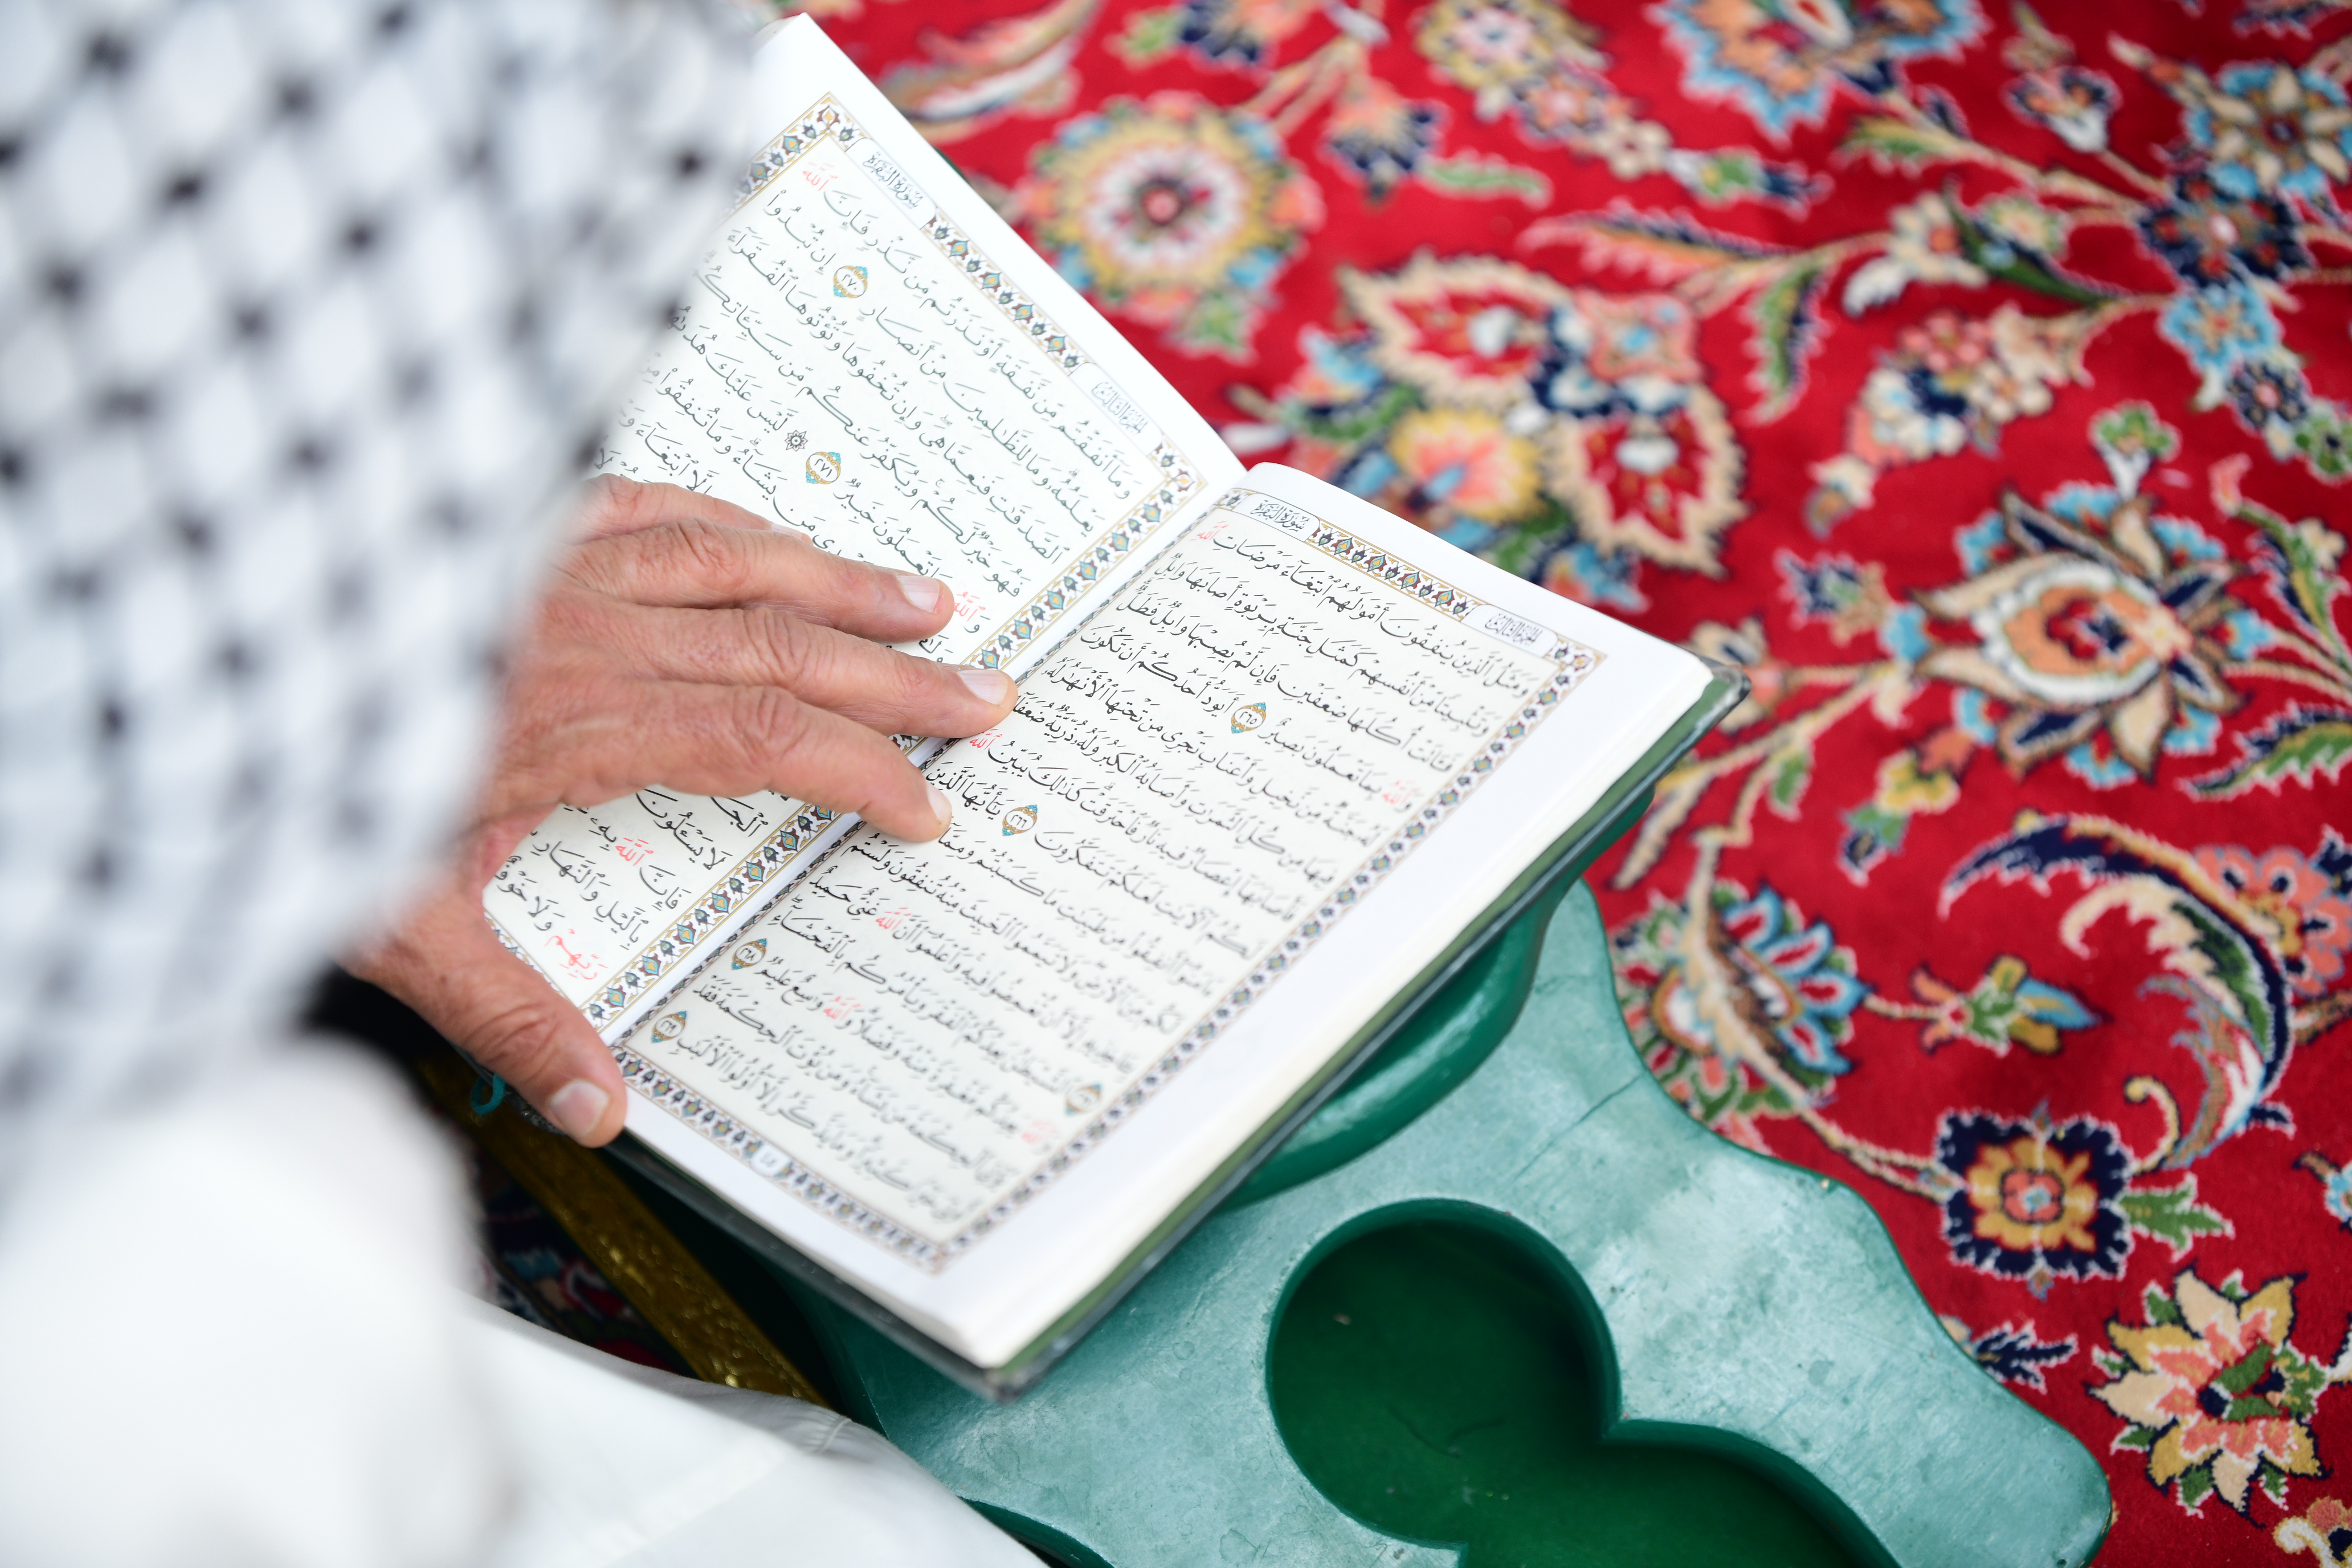 سُورَةُ البَقَرَةِ
الجُزْءُ الثَّالِثُ
وَمَثَلُ ٱلَّذِينَ يُنفِقُونَ أَمْوَٰلَهُمُ ٱبْتِغَآءَ مَرْضَاتِ ٱللَّهِ
وَتَثْبِيتًا مِّنْ أَنفُسِهِمْ كَمَثَلِ جَنَّةٍۭ بِرَبْوَةٍ أَصَابَهَا وَابِلٌ
فَـَٔاتَتْ أُكُلَهَا ضِعْفَيْنِ فَإِن لَّمْ يُصِبْهَا وَابِلٌ فَطَلٌّ
وَٱللَّهُ بِمَا تَعْمَلُونَ بَصِيرٌ ٢٦٥ أَيَوَدُّ أَحَدُكُمْ أَن تَكُونَ
لَهُۥ جَنَّةٌ مِّن نَّخِيلٍ وَأَعْنَابٍ تَجْرِى مِن تَحْتِهَا ٱلْأَنْهَٰرُ لَهُۥ
فِيهَا مِن كُلِّ ٱلثَّمَرَٰتِ وَأَصَابَهُ ٱلْكِبَرُ وَلَهُۥ ذُرِّيَّةٌ ضُعَفَآءُ
فَأَصَابَهَآ إِعْصَارٌ فِيهِ نَارٌ فَٱحْتَرَقَتْ كَذَٰلِكَ يُبَيِّنُ ٱللَّهُ
لَكُمُ ٱلْءَايَٰتِ لَعَلَّكُمْ تَتَفَكَّرُونَ ٢٦٦ يَٰٓأَيُّهَا ٱلَّذِينَ
ءَامَنُوٓا۟ أَنفِقُوا۟ مِن طَيِّبَٰتِ مَا كَسَبْتُمْ وَمِمَّآ
لَكُم مِّنَ ٱلْأَرْضِ وَلَا تَيَمَّمُوا۟ ٱلْخَبِيثَ مِنْهُ تُنفِقُونَ وَلَسْتُم
بِـَٔاخِذِيهِ إِلَّآ أَن تُغْمِضُوا۟ فِيهِ وَٱعْلَمُوٓا۟ أَنَّ ٱللَّهَ غَنِىٌّ حَمِيدٌ
٢٦٧ ٱلشَّيْطَٰنُ يَعِدُكُمُ ٱلْفَقْرَ وَيَأْمُرُكُم بِٱلْفَحْشَآءِ
وَٱللَّهُ يَعِدُكُم مَّغْفِرَةً مِّنْهُ وَفَضْلًا وَٱللَّهُ وَٰسِعٌ عَلِيمٌ ٢٦٨
يُؤْتِى ٱلْحِكْمَةَ مَن يَشَآءُ وَمَن يُؤْتَ ٱلْحِكْمَةَ فَقَدْ
أُوتِىَ خَيْرًا كَثِيرًا وَمَا يَذَّكَّرُ إِلَّآ أُو۟لُوا۟ ٱلْأَلْبَٰبِ ٢٦٩
٤٥
الجُزْءُ الثَّالِثُ
سُورَةُ البَقَرَةِ
وَمَآ أَنفَقْتُم مِّن نَّفَقَةٍ أَوْ نَذَرْتُم مِّن نَّذْرٍ فَإِنَّ ٱللَّهَ
يَعْلَمُهُۥ وَمَا لِلظَّٰلِمِينَ مِنْ أَنصَارٍ ٢٧٠ إِن تُبْدُوا۟
ٱلصَّدَقَٰتِ فَنِعِمَّا هِىَ وَإِن تُخْفُوهَا وَتُؤْتُوهَا ٱلْفُقَرَآءَ
فَهُوَ خَيْرٌ لَّكُمْ وَيُكَفِّرُ عَنكُم مِّن سَيِّـَٔاتِكُمْ
تَعْمَلُونَ خَبِيرٌ ٢٧١ لَّيْسَ عَلَيْكَ
مَن يَشَآءُ وَمَا تُنفِقُوا۟
إِلَّا ٱبْتِغَآءَ
لَا يَسْـَٔلُونَ
فَإِنَّ ٱللَّهَ بِهِۦ
بِٱلَّيْلِ وَٱلنَّهَارِ
رَبِّهِمْ وَلَا خَوْفٌ